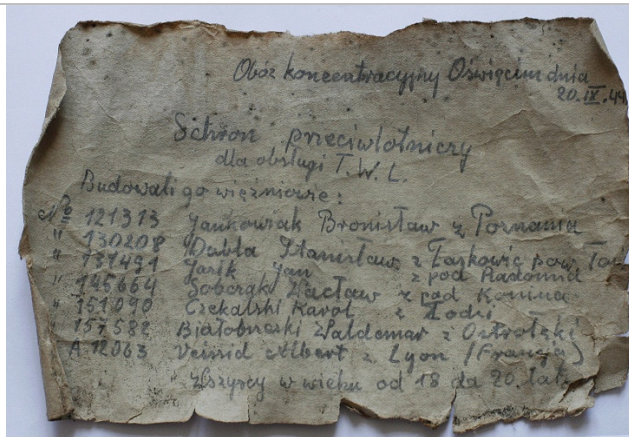 Obóz koncentracyjny Oświęcim dnia
20.IX.44
Schron przeciwlotniczy
dla obsługi T.W.L.
Budowali go więźniowie:
No 121313 Jankowiak Bronisław z Poznania
" 130208 Dubla Stanisław z Łaskowic pow.
" 131491 Jasik Jan z pod Radomia
" 145664 Sobczak Wacław z pod Konina
" 151090 Czekalski Karol z Łodzi
157582 Białobrzeski Waldemar z Ostrołęki
A 12063 Veissid Albert z Lyon (Francja)
Wszyscy w wieku od 18 do 20 lat